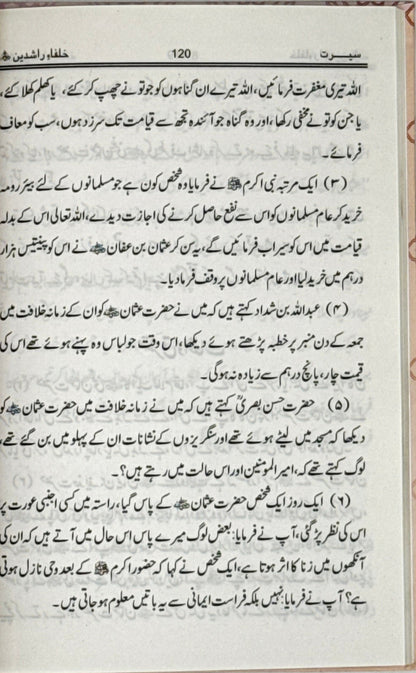 سیرت 120 خلفاء راشدین ؓ
اللہ تیری مغفرت فرمائیں، اللہ تیرے ان گناہوں کو جو تو نے چھپ کر کئے، یا کھلم کھلا کئے،
یا جن کو تو نے مخفی رکھا، اور وہ گناہ جو آئندہ تجھ سے قیامت تک سرزد ہوں، سب کو معاف
فرمائے۔
(۳) ایک مرتبہ نبی اکرم ﷺ نے فرمایا وہ شخص کون ہے جو مسلمانوں کے لئے بیئر رومہ
خرید کر عام مسلمانوں کو اس سے نفع حاصل کرنے کی اجازت دیدے، اللہ تعالیٰ اس کے بدلہ
قیامت میں اس کو سیراب فرمائیں گے، یہ سن کر عثمان بن عفان ؓ نے اس کو پینتیس ہزار
درہم میں خرید لیا اور عام مسلمانوں پر وقف فرما دیا۔
(۴) عبداللہ بن شداد کہتے ہیں کہ میں نے حضرت عثمان ؓ کو ان کے زمانہ خلافت میں
جمعہ کے دن منبر پر خطبہ پڑھتے ہوئے دیکھا، اس وقت جو لباس وہ پہنے ہوئے تھے اس کی
قیمت چار، پانچ درہم سے زیادہ نہ ہوگی۔
(۵) حضرت حسن بصریؒ کہتے ہیں کہ میں نے زمانہ خلافت میں حضرت عثمان ؓ کو
دیکھا کہ مسجد میں لیٹے ہوئے تھے اور سنگریزوں کے نشانات ان کے پہلو میں بن گئے تھے،
لوگ کہتے تھے کہ، امیر المومنین اور اس حالت میں رہتے ہیں؟۔
(۶) ایک روز ایک شخص حضرت عثمان ؓ کے پاس گیا، راستہ میں کسی اجنبی عورت پر
اس کی نظر پڑ گئی، آپ نے فرمایا: بعض لوگ میرے پاس اس حال میں آتے ہیں کہ ان کی
آنکھوں میں زنا کا اثر ہوتا ہے، ایک شخص نے کہا کہ حضور اکرم ﷺ کے بعد وحی نازل ہوتی
ہے؟ آپ نے فرمایا: نہیں بلکہ فراست ایمانی سے یہ باتیں معلوم ہو جاتی ہیں۔